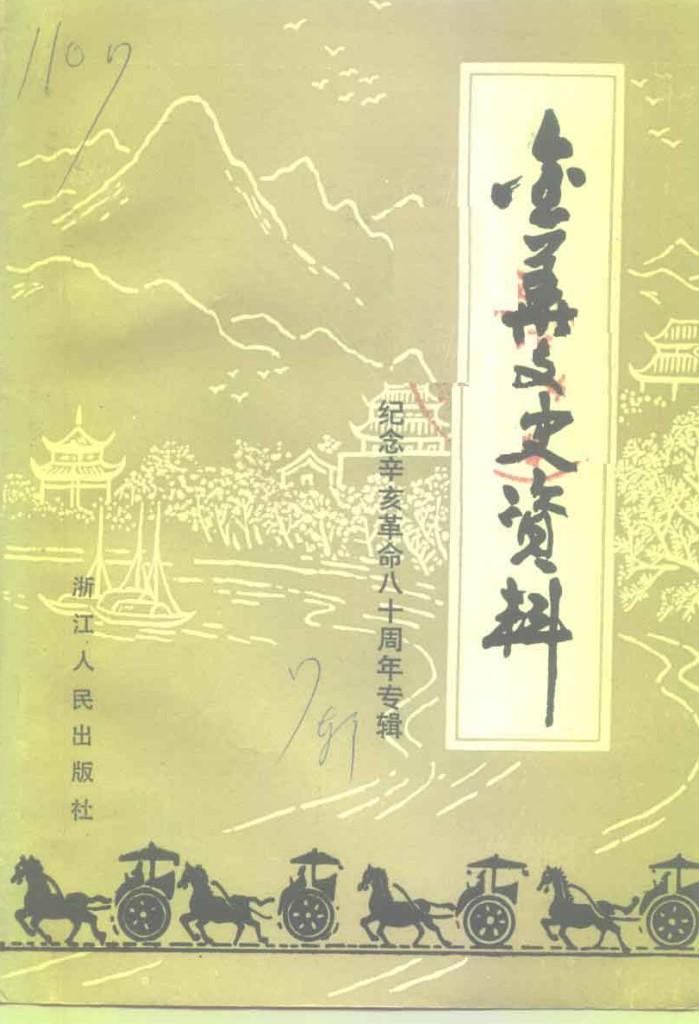 金华文史资料
纪念辛亥革命八十周年专辑
浙江人民出版社
1107